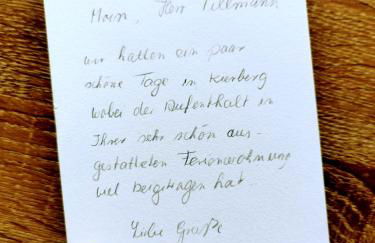 Moin, Herr Tillmann
wir hatten ein paar
schöne Tage in Kierberg
wobei der Aufenthalt in
Ihrer sehr schön aus-
gestatteten Ferienwohnung
viel beigetragen hat.
Liebe Grüße